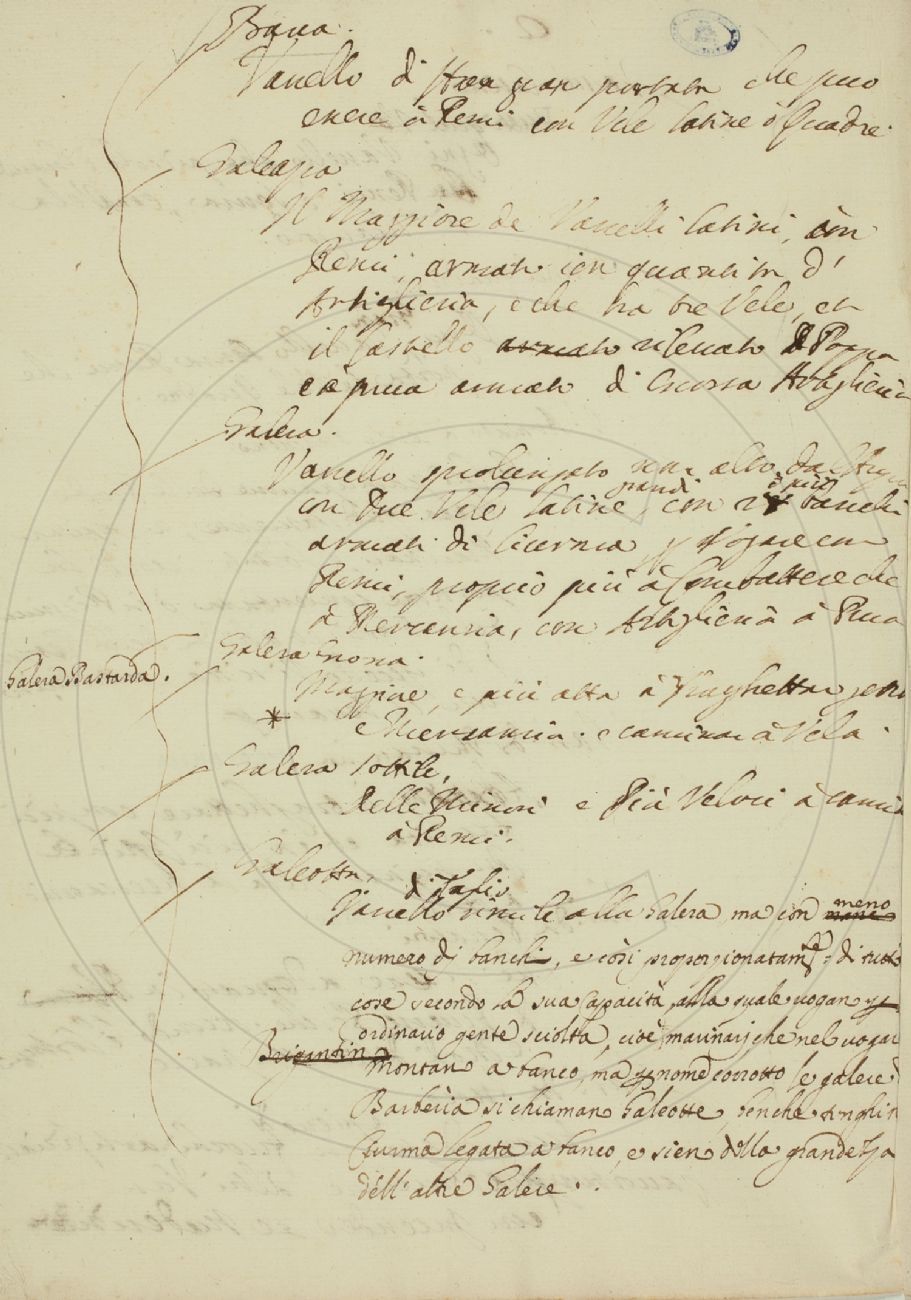 Vascello di non gran portata che puo
essere à Remi con Vele latine ò Quadre.
Galeazza
Il Maggiore de Vascelli latini, con
Remi, armato con quantità d'
Artiglieria, e che ha tre Vele, et
il Castello armato rilevato à Poppa
e à prua armato di Grossa Artiglieria
Galera.
Vascello prolungato non alto
con Due Vele latine grandi, con e più banchi
armati di Ciurma p Vogare con
Remi, proprio più à Combattere che
à Mercanzia, con Artiglieria à Prua
Galera Grossa.
Galera Bastarda.
Maggiore, e più alta à Traghettar gente
* e Mercanzia. e caminar à Vela.
Galera sottile,
Delle Minori e Più Veloci à camin
à Remi.
Galeotta.
di Taglio
Vascello simile alla Galera, ma con meno
numero di banchi, e così proporzionatamte di tutte
cose secondo la sua capacità, alla quale vogan p
ordinario gente sciolta, cioè marinarj che nel vogar
Brigantin
montan a banco, ma p nome corrotto le galere di
Barberia si chiaman Galeotte, benche
Ciurma legata a banco, e sien della grandezza
dell'altre Galere.